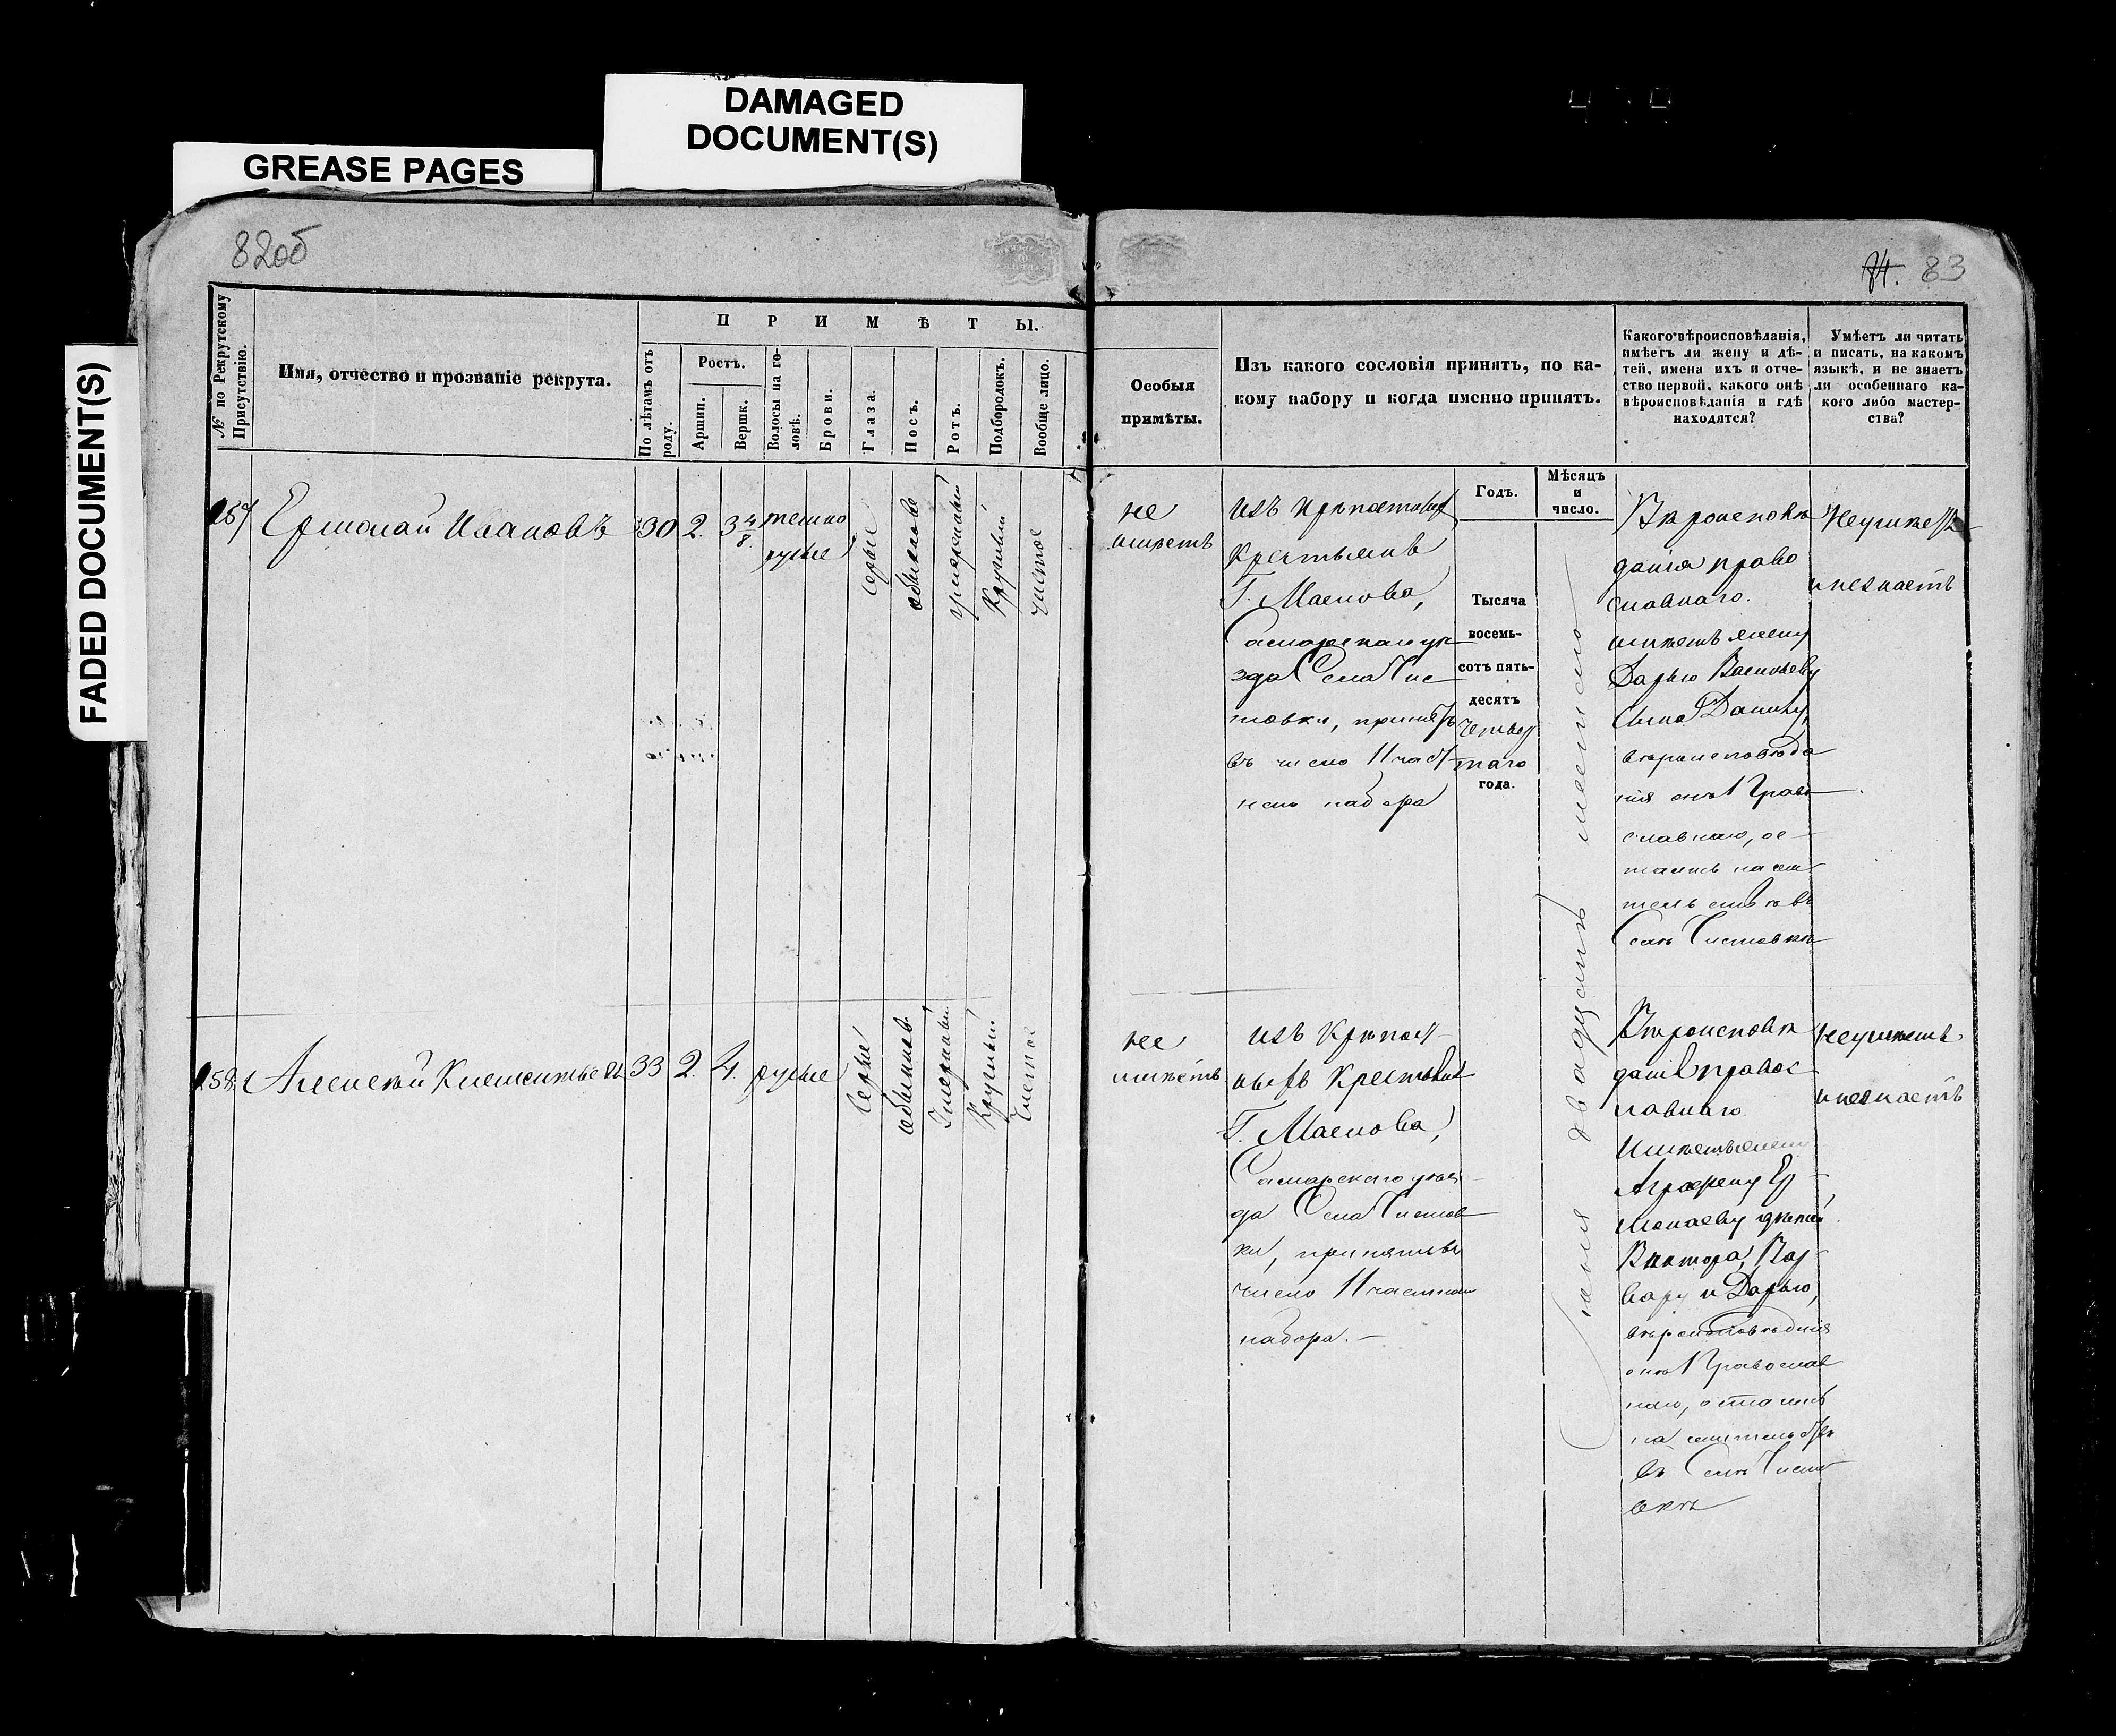 DAMAGED
DOCUMENT(S)
GREASE PAGES
FADED DOCUMENT(S)
82об
83
№ по Рекрутскому
Присутствію.
Имя, отчество и прозваніе рекрута.
ПРИМѢТЫ.
По лѣтамъ отъ
роду.
Ростъ.
Аршин.
Вершк.
Волосы на го-
ловѣ.
Брови.
Глаза.
Носъ.
Ротъ.
Подбородокъ.
Вообще лицо.
Особыя
примѣты.
Изъ какого сословія принятъ, по ка-
кому набору и когда именно принятъ.
Какого вѣроисповѣданія,
имѣетъ ли жену и дѣ-
тей, имена ихъ и отче-
ство первой, какого онѣ
вѣроисповѣданія и гдѣ
находятся?
Умѣетъ ли читать
и писать, на какомъ
языкѣ, и не знаетъ
ли особеннаго ка-
кого либо мастер-
ства?
Годъ.
Мѣсяцъ
и
число.
Ермолай Ивановъ
30
2.
3 4/8
темно
русые
серые
умеренный
Круглый
чистое
не
имѣетъ
изъ
Крестьянъ
Г. Маслова,
Самарскаго уѣ
зда Села Чис
товки, принятъ
въ число 11 част
наго набора
Тысяча
восемь-
сотъ пять-
десятъ
четвер
таго
года.
двадцать шестого
Вѣроисповѣ
данія право
славнаго.
имѣетъ жену
Дарью Васильеву
сына Данилу,
вѣроисповѣда
нія онѣ Право
славнаго, ос
Селѣ Чистовкѣ
Неумѣетъ
и незнаетъ
158.
Алексѣй Клементьевъ
33
2.
4.
русые
Серые
Умеренный
Круглый
Чистое
не
имѣетъ
изъ Крѣпост
ныхъ Крестьянъ
Г. Маслова,
Самарскаго уѣз
да Села Чистов
ки, принятъ въ
число 11 частнаго
набора.
Вѣроисповѣ
данія правос
лавнаго
Имѣетъ жену
Аграфену Ер
молаеву дѣтей
Виктора, Вар
вару и Дарью,
вѣроисповѣданія
онѣ Православ
наго, остались
въ Селѣ Чисто
вкѣ
неумѣетъ
и незнаетъ